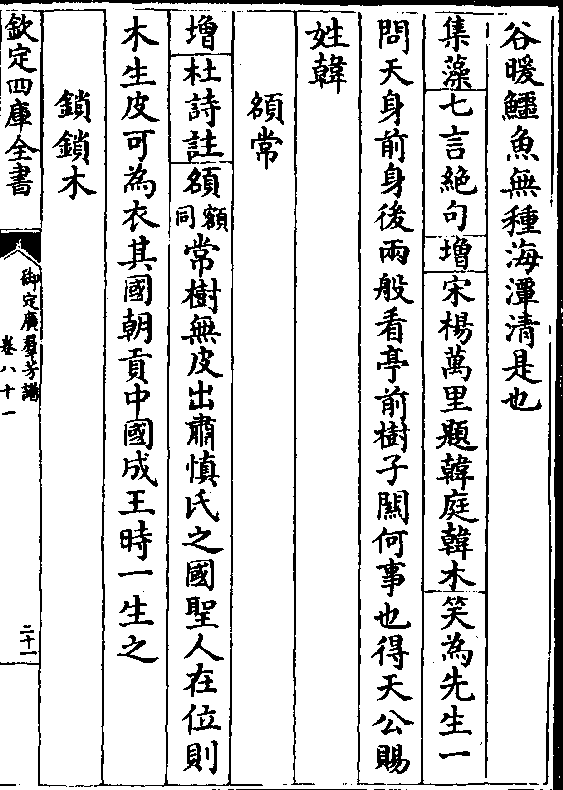 谷暖鱷魚無種海潭清是也
集藻七言絶句增宋楊萬里題韓庭韓木笑為先生一
問天身前身後兩般看亭前樹子關何事也得天公賜
姓韓
頟常
增杜詩註頟額同常樹無皮出肅慎氏之國聖人在位則
木生皮可為衣其國朝貢中國成王時一生之
鎖鎖木
欽定四庫全書
御定廣羣芳譜
卷八十一
二十一